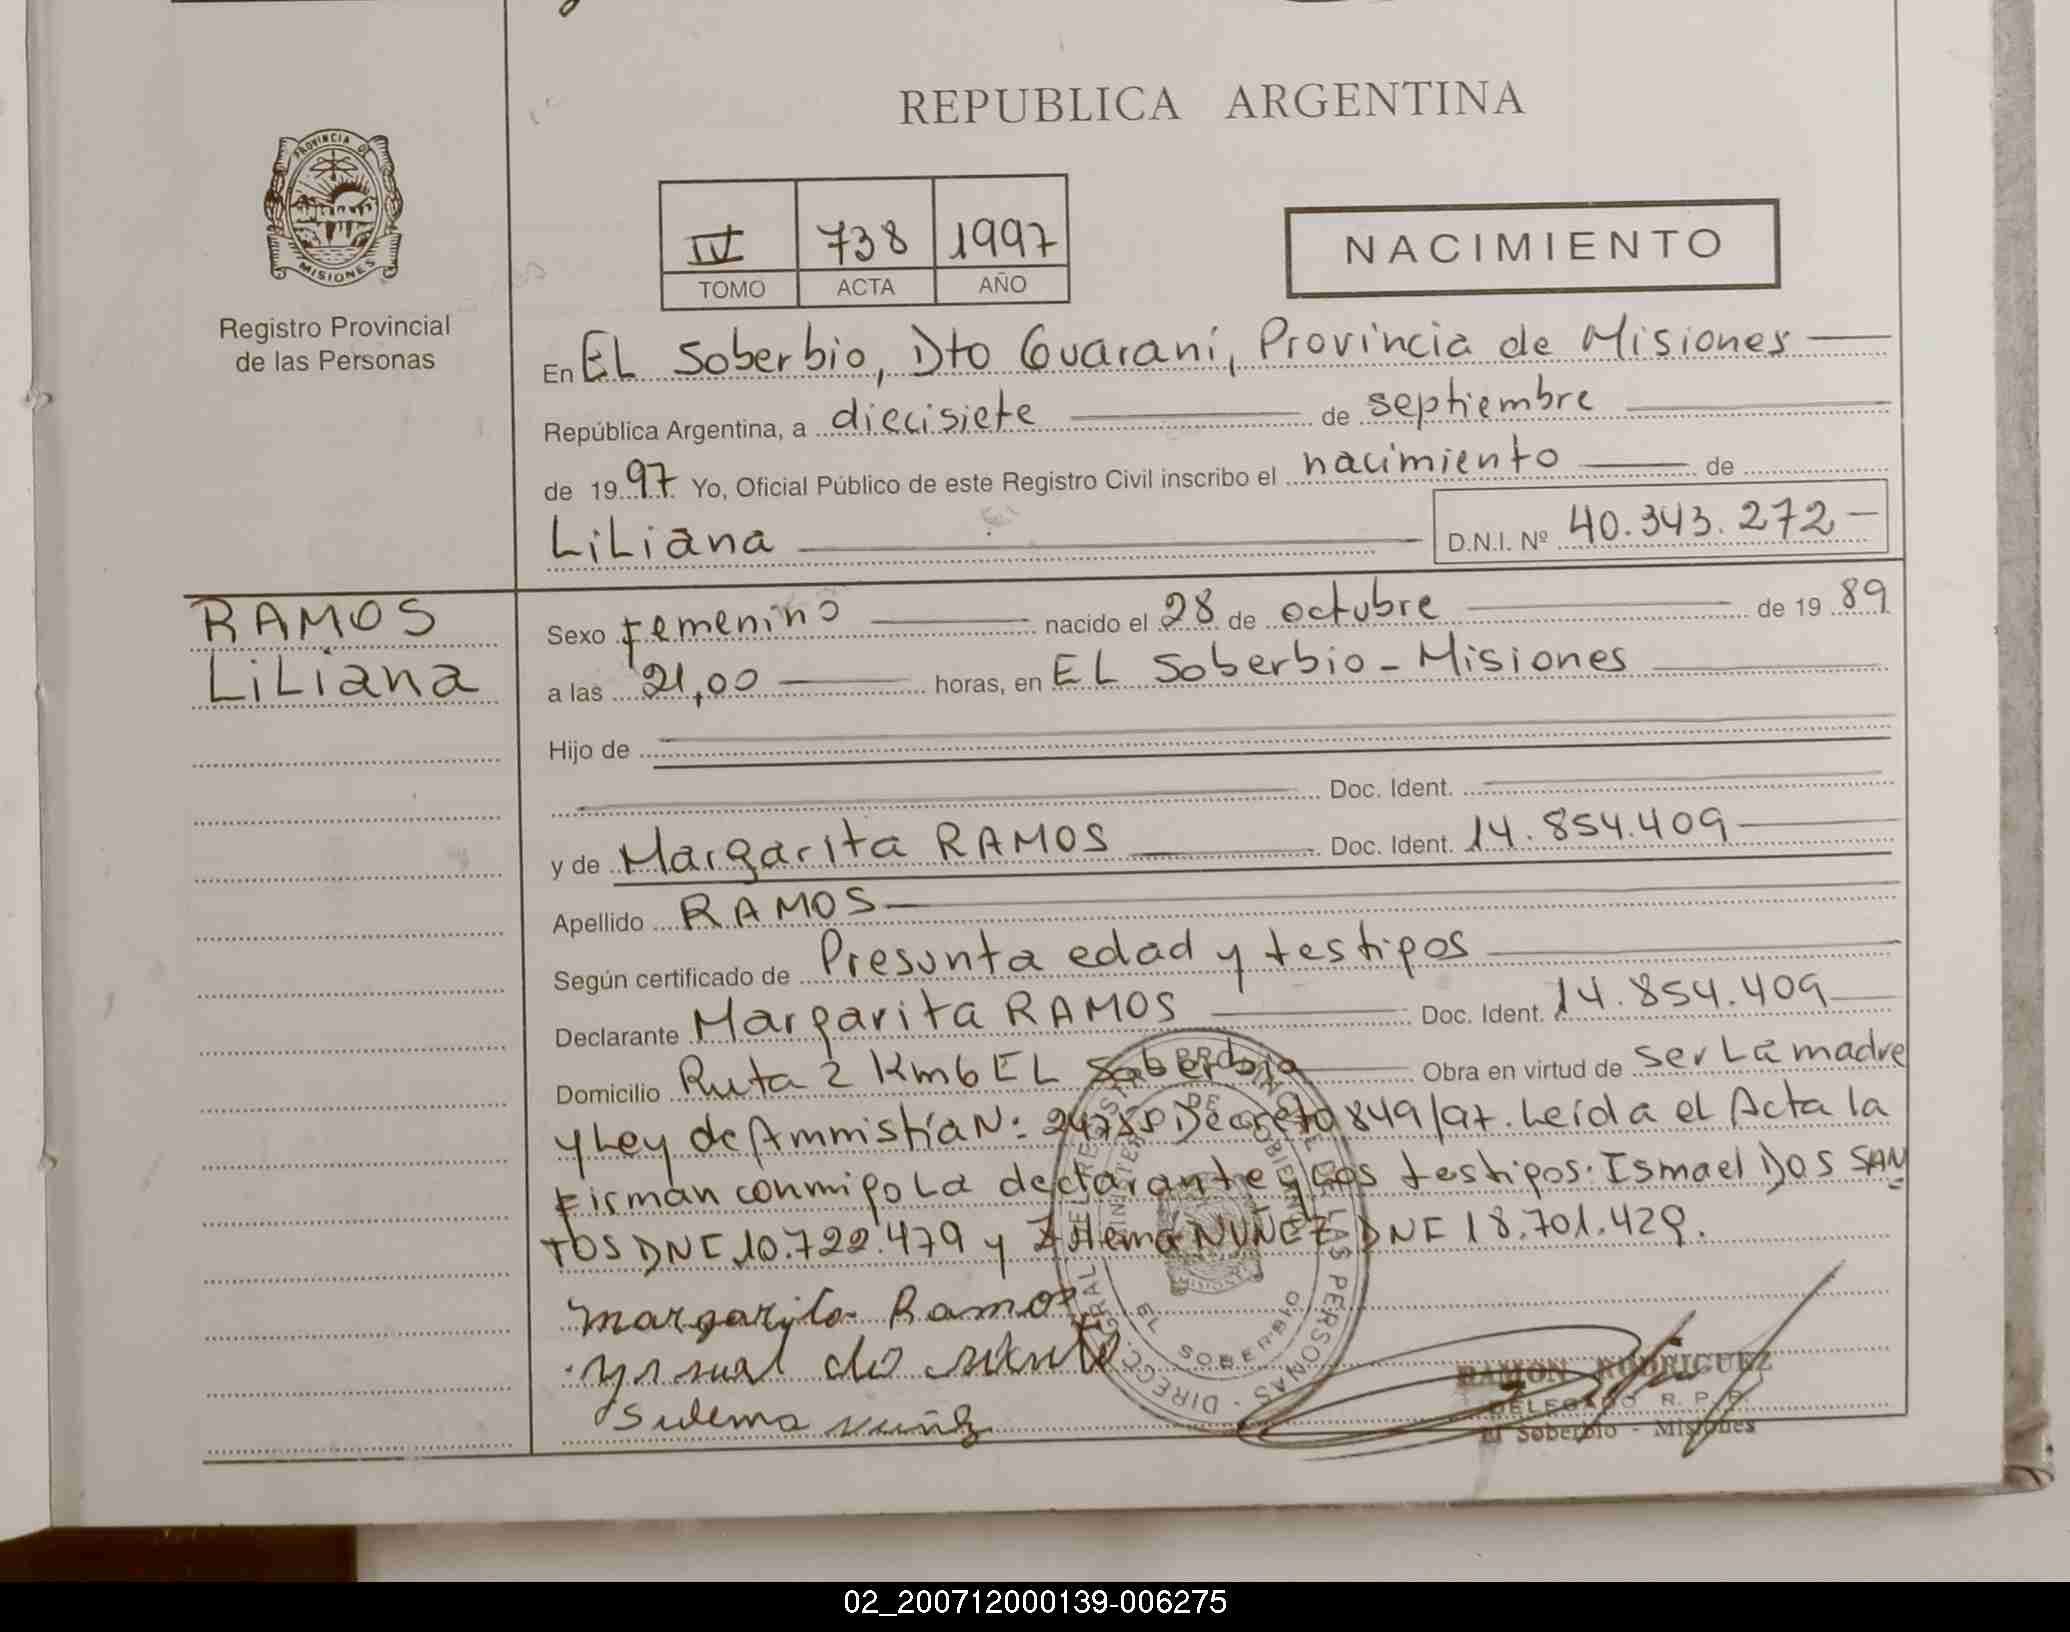 REPUBLICA ARGENTINA
PROVINCIA DE
MISIONES
Registro Provincial
de las Personas
IV 738 1997
TOMO ACTA AÑO
NACIMIENTO
En EL Soberbio, Dto Guaraní, Provincia de Misiones
República Argentina, a diecisiete de septiembre
de 1997 Yo, Oficial Público de este Registro Civil inscribo el nacimiento de
LiLiana D.N.I. Nº 40.343.272
RAMOS
LiLiana
Sexo femenino nacido el 28 de octubre de 1989
a las 21,00 horas, en EL Soberbio - Misiones
Hijo de
Doc. Ident.
y de Margarita RAMOS Doc. Ident. 14.854.409
Apellido RAMOS
Según certificado de Presunta edad y testigos
Declarante Margarita RAMOS Doc. Ident. 14.854.409
Domicilio Ruta 2 Km 6 EL Soberbio Obra en virtud de ser La madre
y Ley de Ammistía N: Decreto 849/97. Leída el Acta la
firman conmigo La declarante y Los testigos: Ismael DOS SAN
TOS DNI 10.722.479 y NUÑEZ DNI 18.701.429.
margarita Ramos
Sulema
EL SOBERBIO
RAMON RODRIGUEZ
DELEGADO R. P. P.
El Soberbio - Misiones
02_200712000139-006275